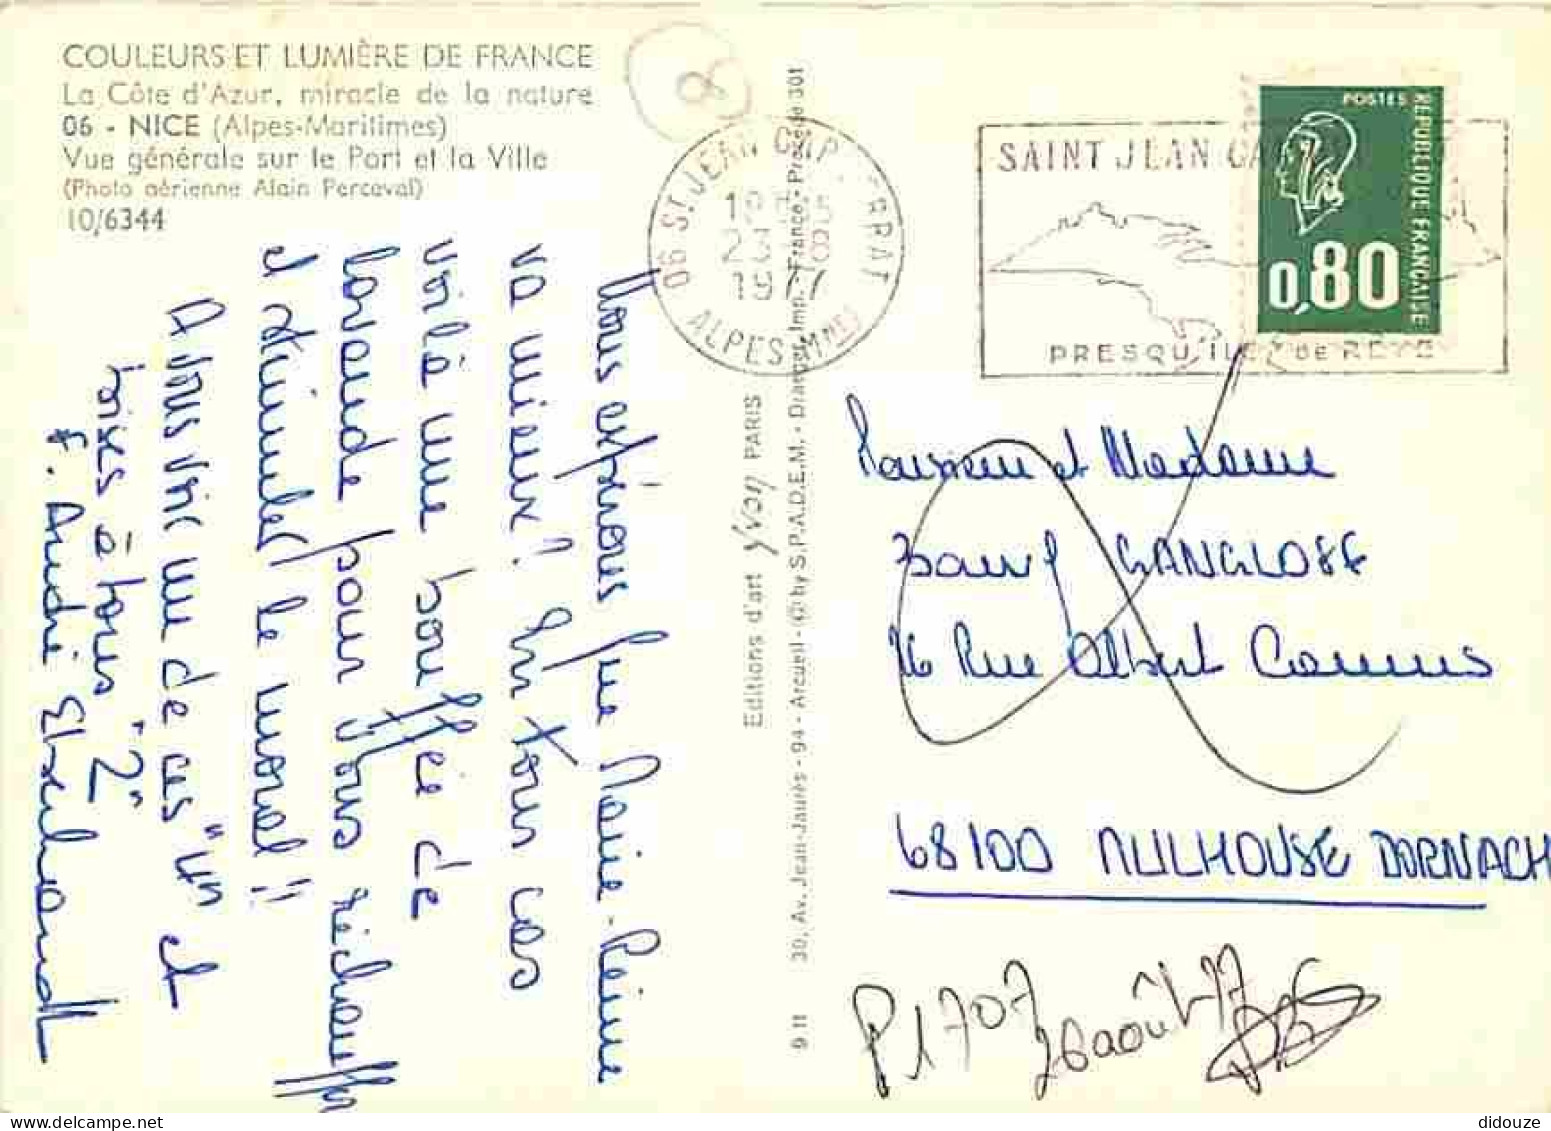 COULEURS ET LUMIÈRE DE FRANCE
La Côte d'Azur, miracle de la nature
06 - NICE (Alpes-Maritimes)
Vue générale sur le Port et la Ville
(Photo aérienne Alain Perceval)
10/6344
8
06 ST. JEAN CAP FERRAT
1977
ALPES MMES
SAINT JEAN CA
PRESQU'ILE DE RÊVE
POSTES
REPUBLIQUE FRANÇAISE
0,80
Nous espérons que Marie-Reine
va mieux! En tous cas
voilà une bouffée de
lavande pour vous réchauffer
et stimuler le moral!!
A vous voir un de ces "un" et
bises à tous "2"
F. André
Editions d'art Yvon PARIS
30, Av. Jean-Jaurès - 94 - Arcueil - © by S.P.A.D.E.M. - Draeger, Imp. - France - Procédé 301
9 11
Monsieur et Madame
GANGLOFF
26 Rue Albert Camus
68100 MULHOUSE DORNACH
P1707
26 août 77
didouze